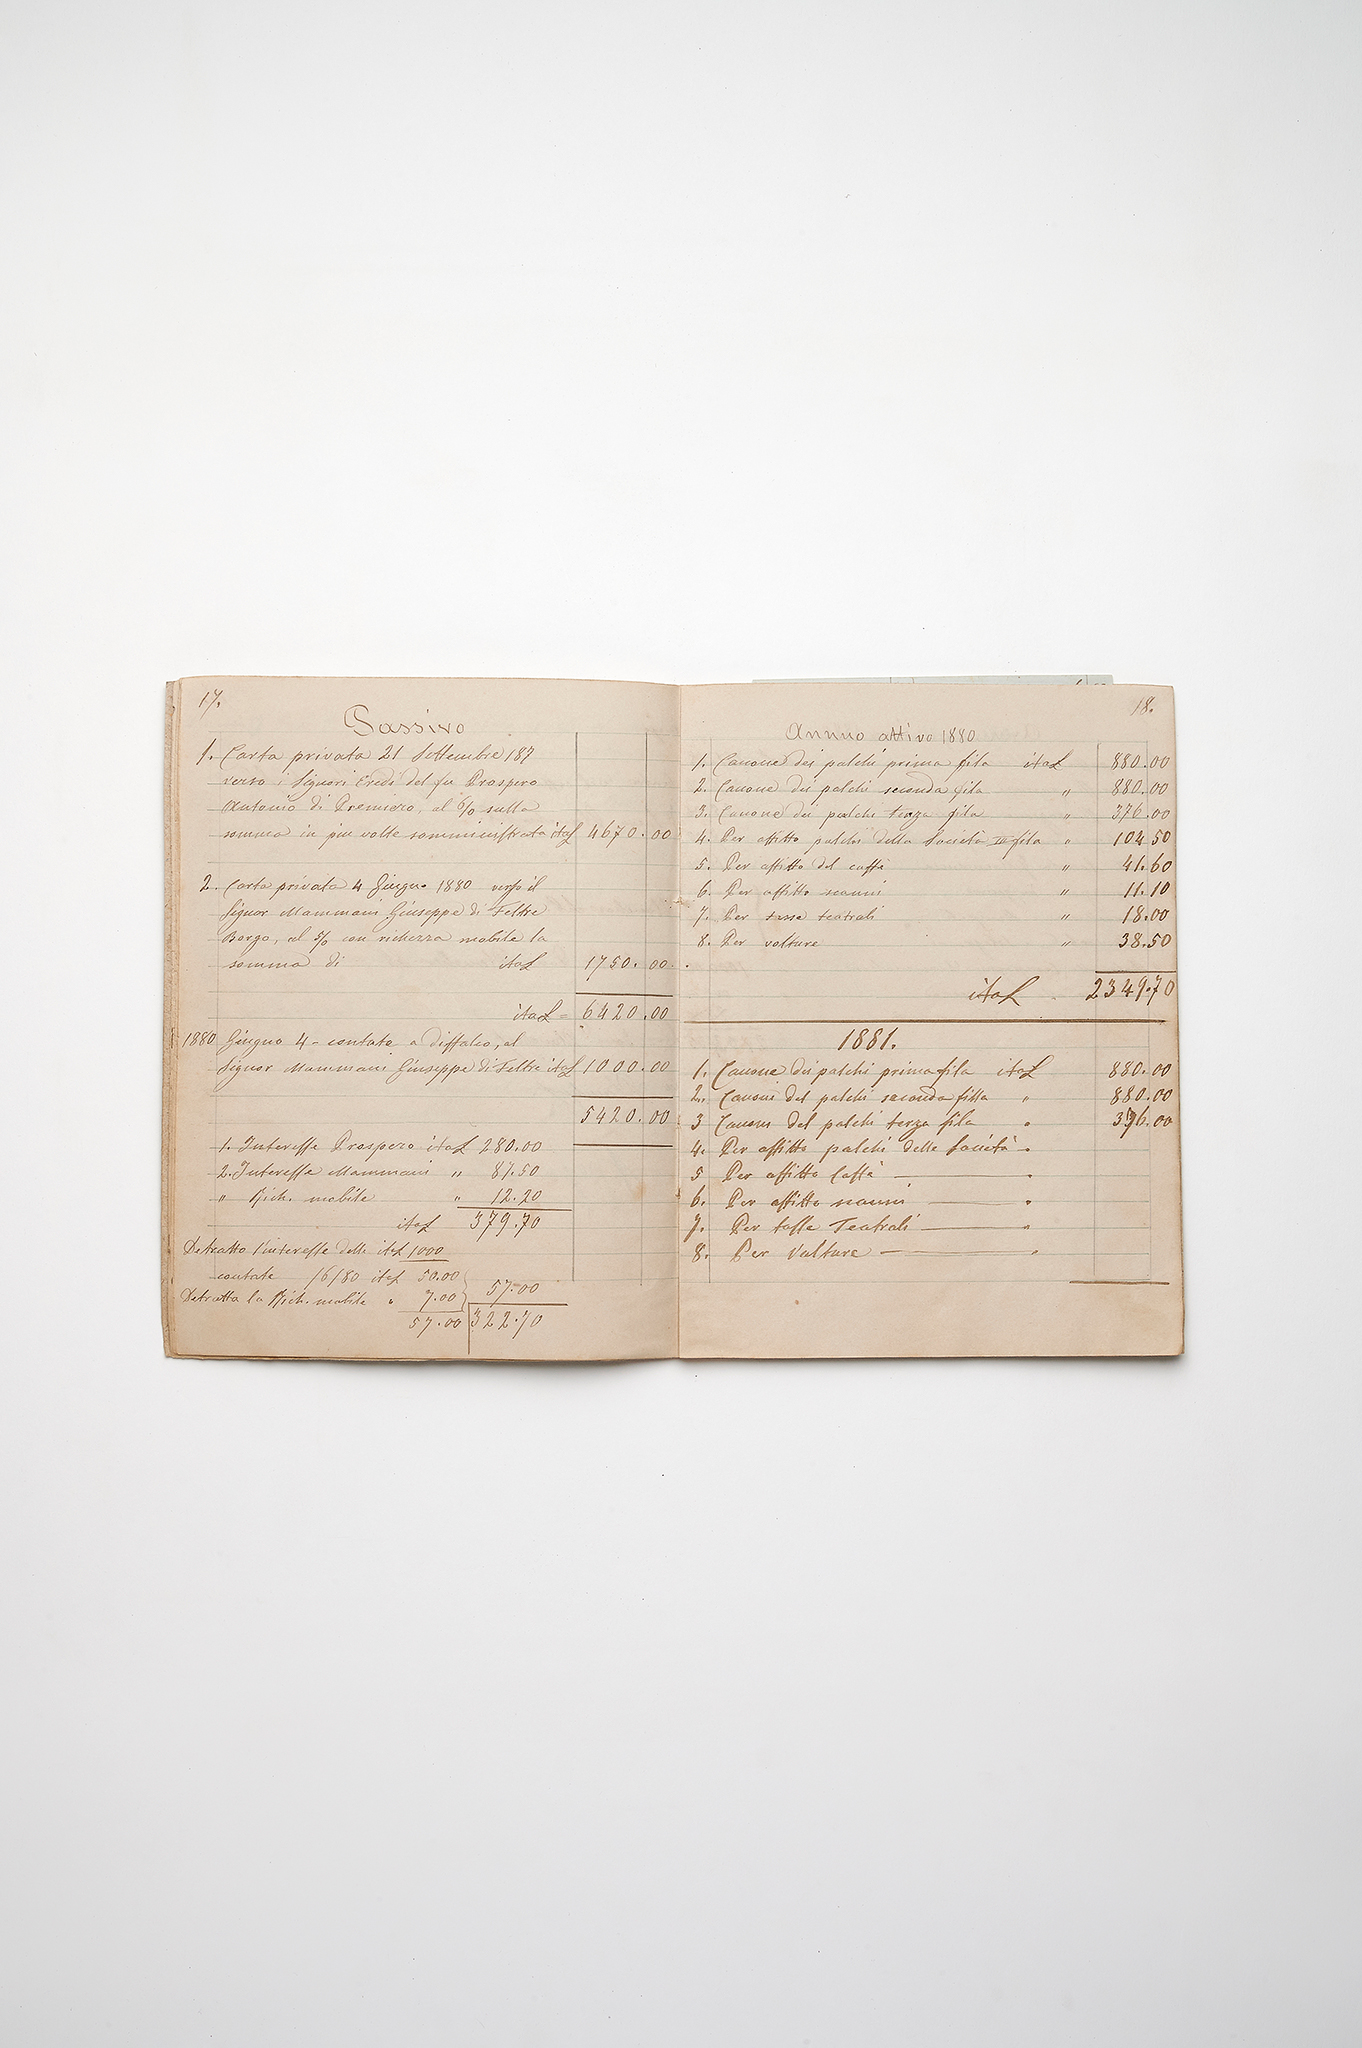 17.
Passivo
1. Carta privata 21 Settembre 187
verso i Signori Eredi del fu Prospero
Antonio di Premiero, al 6% sulla
somma in piu volte somministrata itaL 4670.00
2. Carta privata 4 Giugno 1880 verso il
Signor Mammani Giuseppe di Feltre
Borgo, al 5% con richezza mobile la
somma di itaL 1750.00
itaL = 6420.00
1880 Giugno 4 - contate a diffalco, al
Signor Mammani Giuseppe di Feltre itaL 1000.00
5420.00
1. Interesse Prospero itaL 280.00
2. Interesse Mammani " 87.50
" Rich. mobile " 12.20
itaL 379.70
Detratto l'interesse delle itaL 1000
contate /6/80 itaL 50.00
57.00
Detratta la Rich. mobile " 7.00
57.00 322.70
18.
Annuo attivo 1880
1. Canone dei palchi prima fila itaL 880.00
2. Canone dei palchi seconda fila " 880.00
3. Canone dei palchi terza fila " 376.00
4. Per affitto palchi della Società fila " 104.50
5. Per affitto del caffè " 41.60
6. Per affitto scanni " 11.10
7. Per tasse teatrali " 18.00
8. Per volture " 38.50
itaL 2349.70
1881.
1. Canone dei palchi prima fila itaL 880.00
2. Canoni del palchi seconda filla " 880.00
3 Canoni del palchi terza fila " 376.00
4. Per affitto palchi delle Società "
5 Per affitto Caffè — "
6. Per affitto scanni — "
7. Per tasse Teatrali — "
8. Per Vulture — "